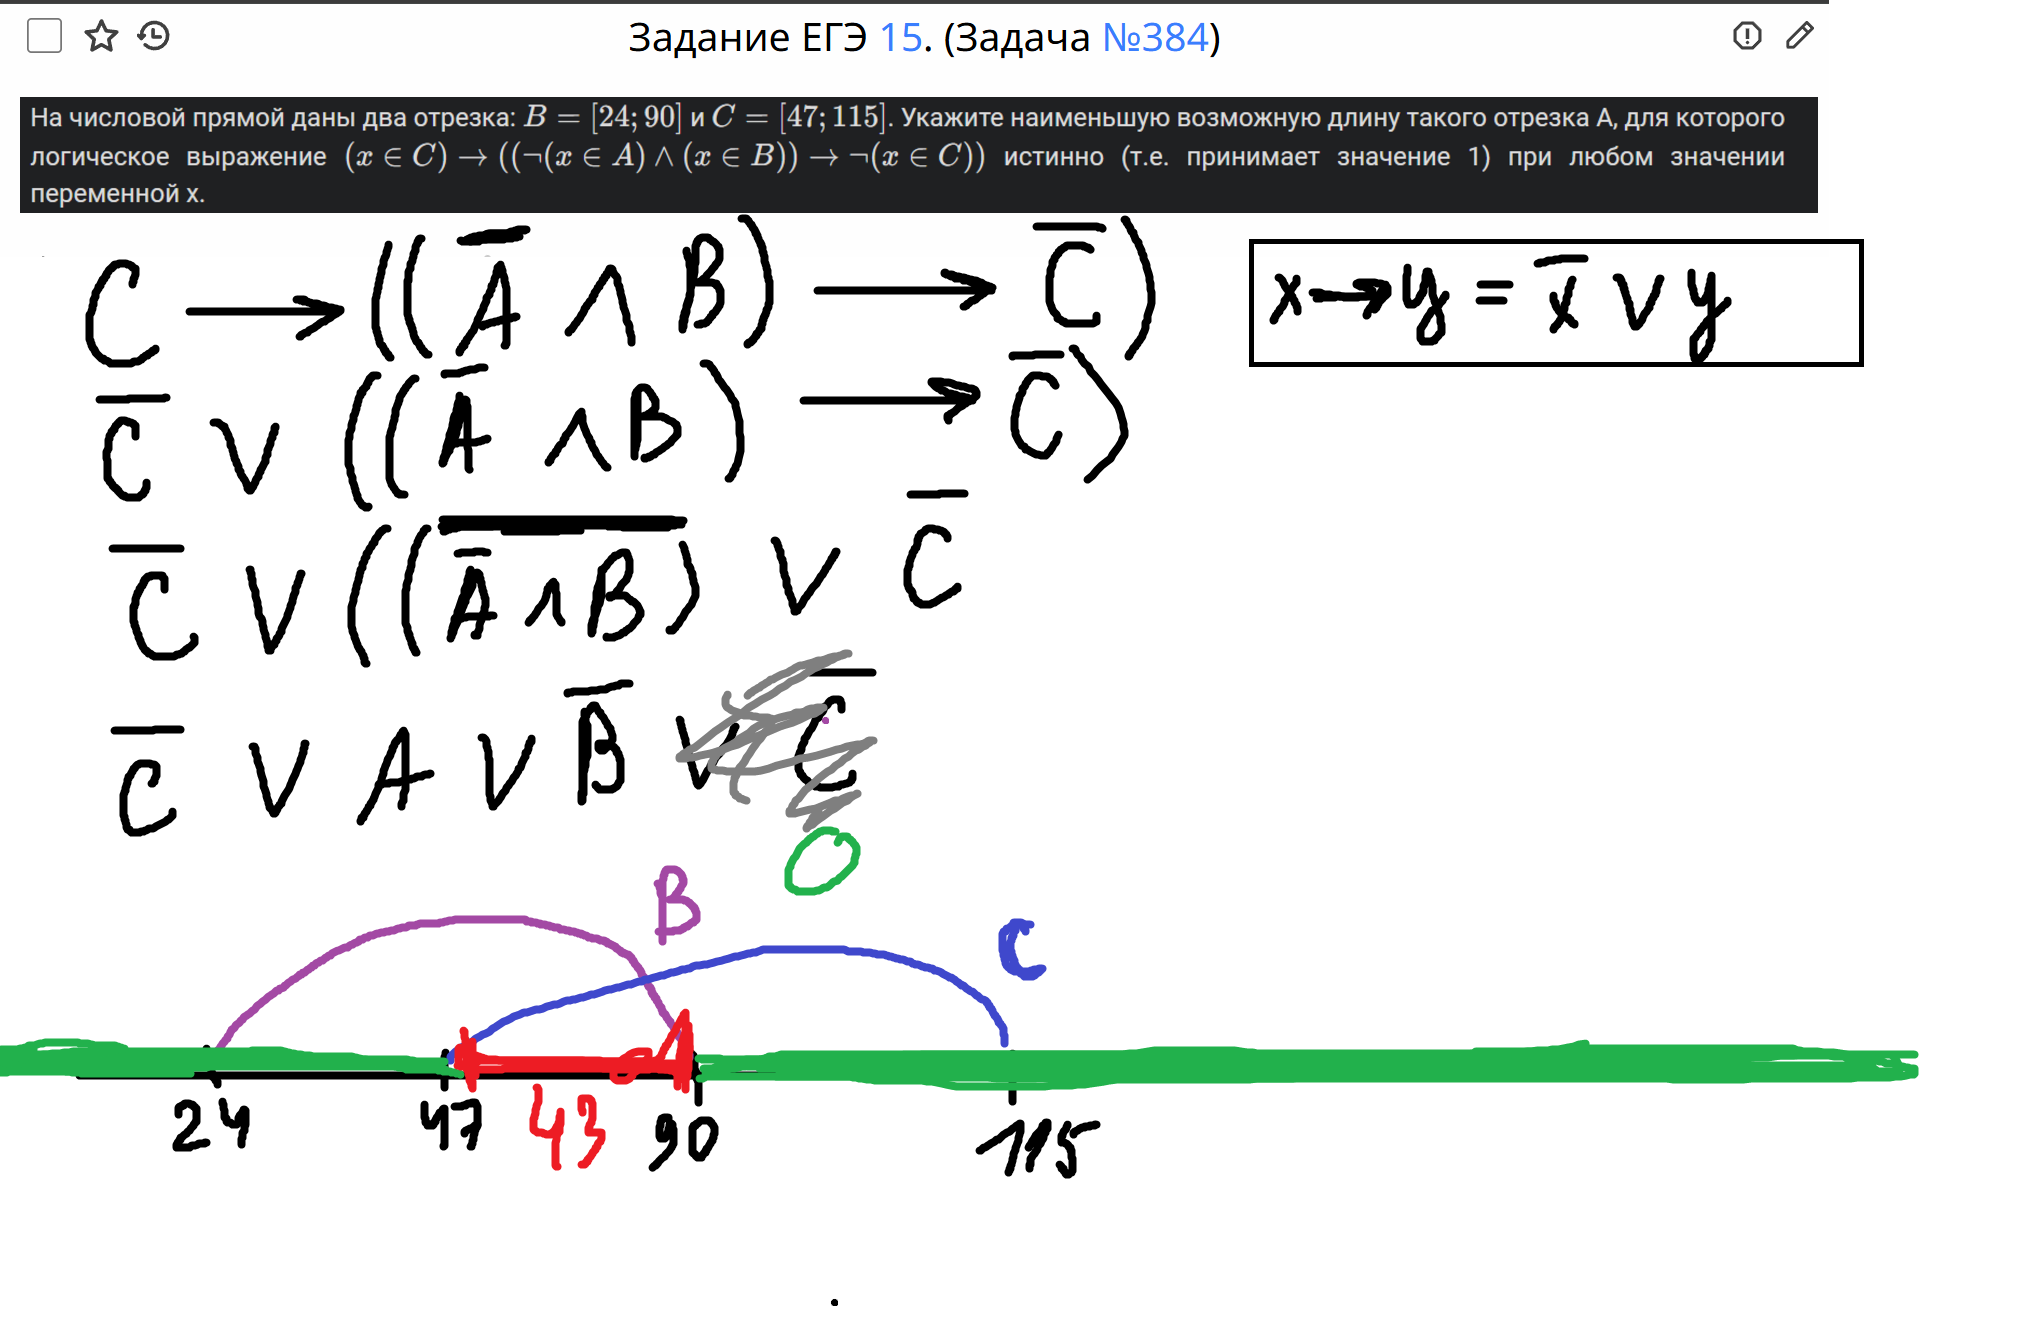 Задание ЕГЭ 15. (Задача №384)
На числовой прямой даны два отрезка: B = [24; 90] и C = [47; 115]. Укажите наименьшую возможную длину такого отрезка A, для которого
логическое выражение (x ∈ C) → ((¬(x ∈ A) ∧ (x ∈ B)) → ¬(x ∈ C)) истинно (т.е. принимает значение 1) при любом значении
переменной x.
C → ((A̅ ∧ B) → C̅)
x → y = x̅ ∨ y
C̅ ∨ ((A̅ ∧ B) → C̅)
C̅ ∨ ((A̅ ∧ B)̅ ∨ C̅
C̅ ∨ A ∨ B̅ ∨ C̅
O
B
C
24 47 43 90 115